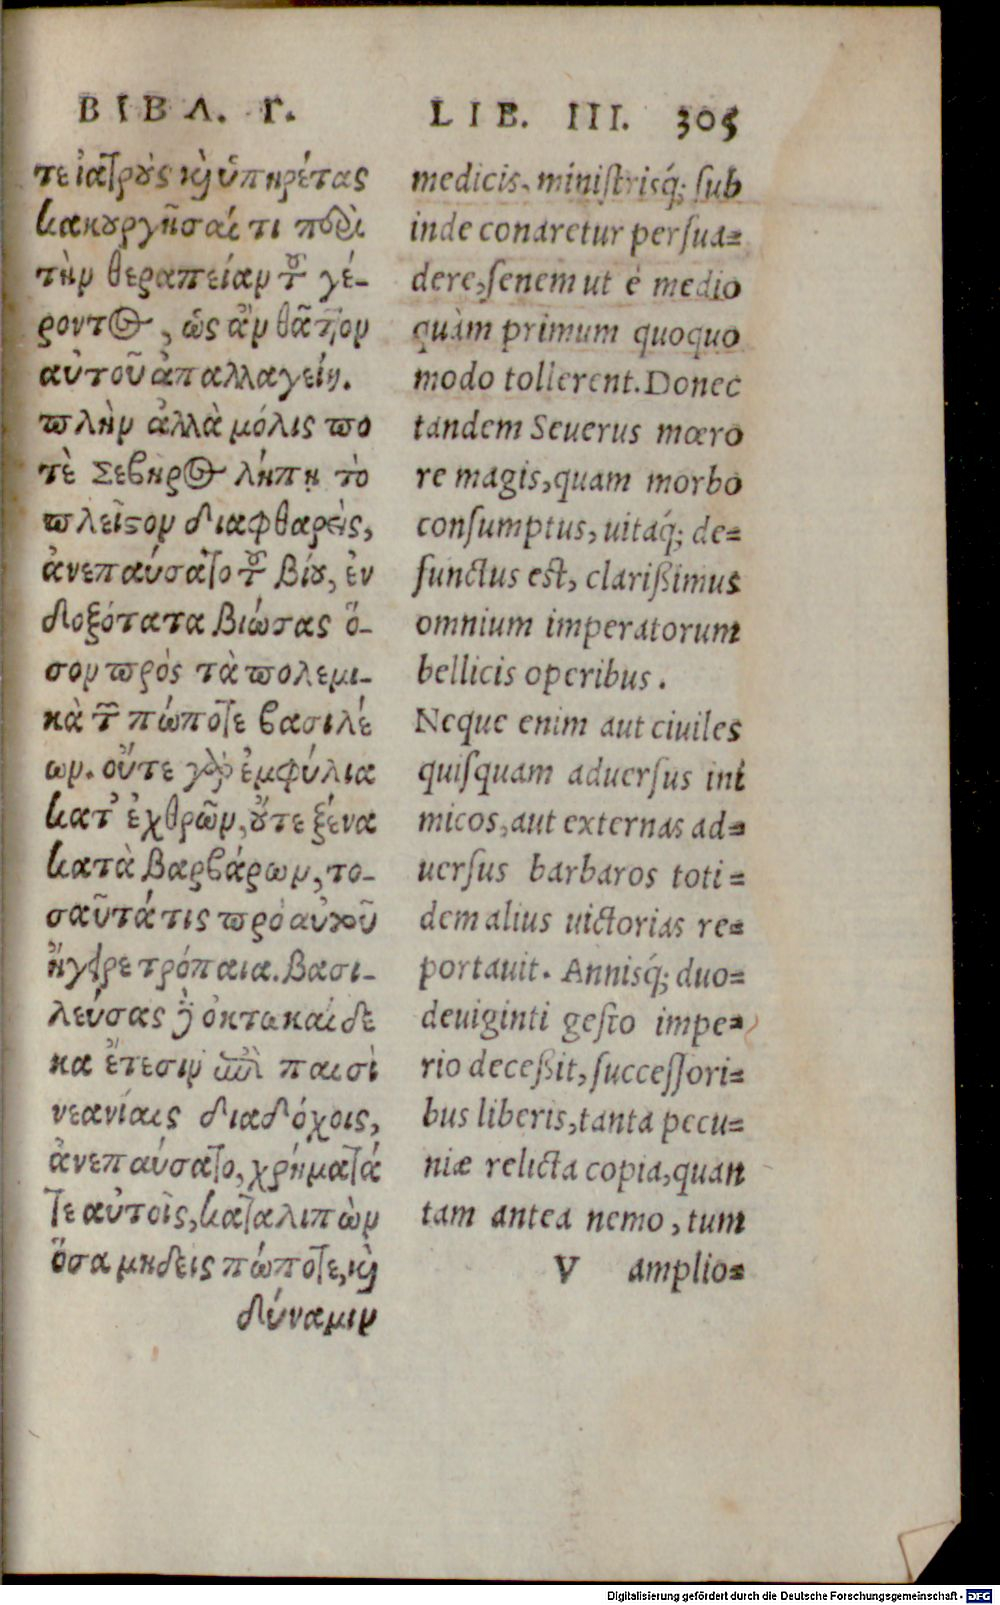 ΒΙΒΛ. Γ.
τε ἰατροὺς καὶ ὑπηρέτας
κακουργῆσαί τι περὶ
τὴν θεραπείαν τοῦ γέ-
ροντος, ὡς ἂν θᾶττον
αὐτοῦ ἀπαλλαγείη.
πλὴν ἀλλὰ μόλις πο
τὲ Σεβηρος λήπῃ τὸ
πλεῖστον διαφθαρεὶς,
ἀνεπαύσατο τοῦ βίου, ἐν
δοξότατα βιώσας ὅ-
σον πρὸς τὰ πολεμι-
κὰ τῶν πώποτε βασιλέ
ων. οὔτε γὰρ ἐμφύλια
κατ' ἐχθρῶν, οὔτε ξένα
κατὰ βαρβάρων, το-
σαῦτά τις πρὸ αὐτοῦ
ἤγειρε τρόπαια. βασι-
λεύσας δὲ ὀκτωκαίδε
κα ἔτεσιν ἐπὶ παισὶ
νεανίαις διαδόχοις,
ἀνεπαύσατο, χρήματά
τε αὐτοῖς, καταλιπὼν
ὅσα μηδεὶς πώποτε, καὶ
δύναμιν
LIB. III. 305
medicis, ministrisq́; sub
inde conaretur persua=
dere, senem ut è medio
quàm primum quoquo
modo tollerent. Donec
tandem Seuerus mœro
re magis, quam morbo
consumptus, uitaq́; de=
functus est, clarißimus
omnium imperatorum
bellicis operibus.
Neque enim aut ciuiles
quisquam aduersus ini
micos, aut externas ad=
uersus barbaros toti=
dem alius uictorias re=
portauit. Annisq́; duo=
deuiginti gesto impe=
rio deceßit, successori=
bus liberis, tanta pecu=
niæ relicta copia, quan
tam antea nemo, tum
V amplio=
Digitalisierung gefördert durch die Deutsche Forschungsgemeinschaft - DFG